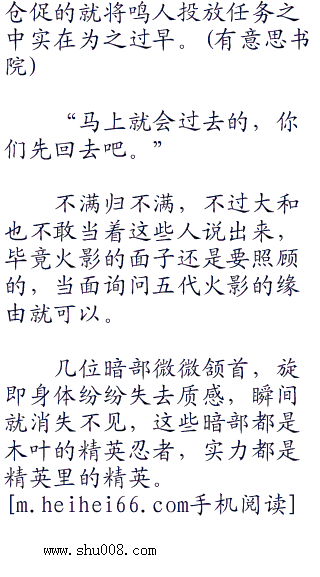 仓促的就将鸣人投放任务之
中实在为之过早。(有意思书
院)
“马上就会过去的，你
们先回去吧。”
不满归不满，不过大和
也不敢当着这些人说出来，
毕竟火影的面子还是要照顾
的，当面询问五代火影的缘
由就可以。
几位暗部微微颔首，旋
即身体纷纷失去质感，瞬间
就消失不见，这些暗部都是
木叶的精英忍者，实力都是
精英里的精英。
[m.heihei66.com手机阅读]
www.shu008.com